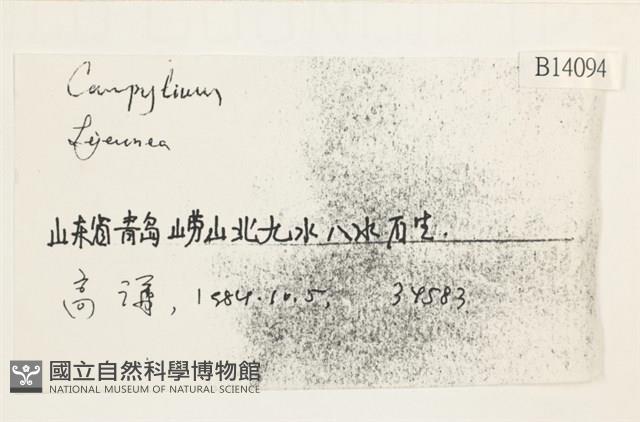 B14094
Campylium
Lejeunea
山东省青岛崂山北九水八水石生.
高谦, 1984.10.5, 34583
國立自然科學博物館
NATIONAL MUSEUM OF NATURAL SCIENCE